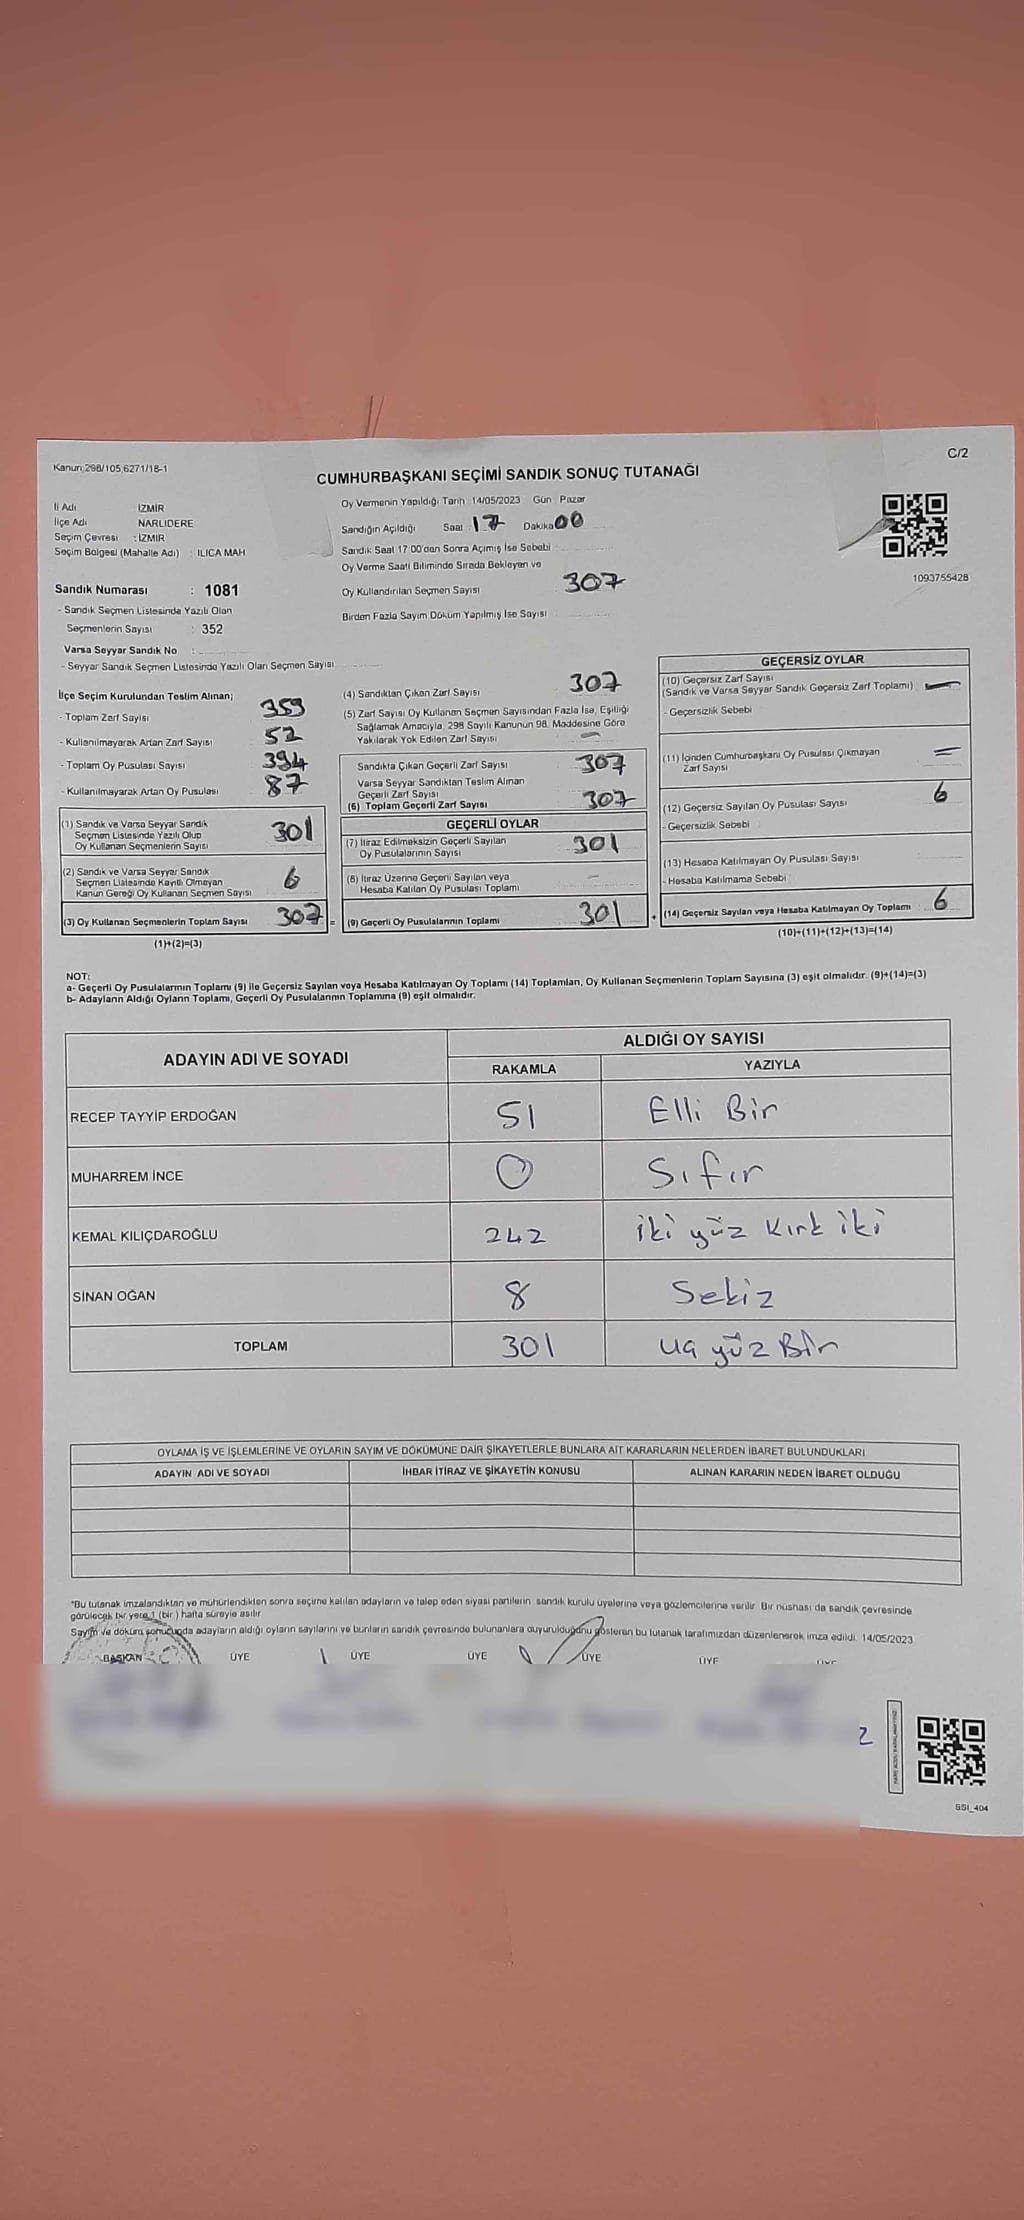 Kanun 298/105,6271/18-1
C/2
CUMHURBAŞKANI SEÇİMİ SANDIK SONUÇ TUTANAĞI
İl Adı İZMİR
İlçe Adı NARLIDERE
Seçim Çevresi : İZMİR
Seçim Bölgesi (Mahalle Adı) : ILICA MAH
Oy Vermenin Yapıldığı Tarih 14/05/2023 Gün Pazar
Sandığın Açıldığı Saat 17 Dakika 00
Sandık Saat 17 00'den Sonra Açımış İse Sebebi
Oy Verme Saati Bitiminde Sırada Bekleyen ve
Oy Kullandırılan Seçmen Sayısı 307
Birden Fazla Sayım Döküm Yapılmış İse Sayısı
1093755428
Sandık Numarası : 1081
- Sandık Seçmen Listesinde Yazılı Olan
Seçmenlerin Sayısı : 352
Varsa Seyyar Sandık No :
- Seyyar Sandık Seçmen Listesinde Yazılı Olan Seçmen Sayısı
İlçe Seçim Kurulundan Teslim Alınan;
- Toplam Zarf Sayısı 359
- Kullanılmayarak Artan Zarf Sayısı 52
- Toplam Oy Pusulası Sayısı 394
- Kullanılmayarak Artan Oy Pusulası 87
(1) Sandık ve Varsa Seyyar Sandık
Seçmen Listesinde Yazılı Olup
Oy Kullanan Seçmenlerin Sayısı 301
(2) Sandık ve Varsa Seyyar Sandık
Seçmen Listesinde Kayıtlı Olmayan
Kanun Gereği Oy Kullanan Seçmen Sayısı 6
(3) Oy Kullanan Seçmenlerin Toplam Sayısı 307 =
(1)+(2)=(3)
(4) Sandıktan Çıkan Zarf Sayısı 307
(5) Zarf Sayısı Oy Kullanan Seçmen Sayısından Fazla İse, Eşitliği
Sağlamak Amacıyla, 298 Sayılı Kanunun 98. Maddesine Göre
Yakılarak Yok Edilen Zarf Sayısı –
Sandıkta Çıkan Geçerli Zarf Sayısı 307
Varsa Seyyar Sandıktan Teslim Alınan
Geçerli Zarf Sayısı
(6) Toplam Geçerli Zarf Sayısı 307
GEÇERLİ OYLAR
(7) İtiraz Edilmeksizin Geçerli Sayılan
Oy Pusulalarının Sayısı 301
(8) İtiraz Üzerine Geçerli Sayılan veya
Hesaba Katılan Oy Pusulası Toplamı –
(9) Geçerli Oy Pusulalarının Toplamı 301 +
GEÇERSİZ OYLAR
(10) Geçersiz Zarf Sayısı
(Sandık ve Varsa Seyyar Sandık Geçersiz Zarf Toplamı) –
- Geçersizlik Sebebi
(11) İçinden Cumhurbaşkanı Oy Pusulası Çıkmayan
Zarf Sayısı =
(12) Geçersiz Sayılan Oy Pusulası Sayısı 6
- Geçersizlik Sebebi
(13) Hesaba Katılmayan Oy Pusulası Sayısı
- Hesaba Katılmama Sebebi
(14) Geçersiz Sayılan veya Hesaba Katılmayan Oy Toplamı 6
(10)+(11)+(12)+(13)=(14)
NOT:
a- Geçerli Oy Pusulalarının Toplamı (9) ile Geçersiz Sayılan veya Hesaba Katılmayan Oy Toplamı (14) Toplamları, Oy Kullanan Seçmenlerin Toplam Sayısına (3) eşit olmalıdır. (9)+(14)=(3)
b- Adayların Aldığı Oyların Toplamı, Geçerli Oy Pusulalarının Toplamına (9) eşit olmalıdır.
ADAYIN ADI VE SOYADI
ALDIĞI OY SAYISI
RAKAMLA YAZIYLA
RECEP TAYYİP ERDOĞAN 51 Elli Bir
MUHARREM İNCE 0 Sıfır
KEMAL KILIÇDAROĞLU 242 iki yüz Kırk iki
SİNAN OĞAN 8 Sekiz
TOPLAM 301 üç yüz Bir
OYLAMA İŞ VE İŞLEMLERİNE VE OYLARIN SAYIM VE DÖKÜMÜNE DAİR ŞİKAYETLERLE BUNLARA AİT KARARLARIN NELERDEN İBARET BULUNDUKLARI
ADAYIN ADI VE SOYADI İHBAR İTİRAZ VE ŞİKAYETİN KONUSU ALINAN KARARIN NEDEN İBARET OLDUĞU
*Bu tutanak imzalandıktan ve mühürlendikten sonra seçime katılan adayların ve talep eden siyasi partilerin sandık kurulu üyelerine veya gözlemcilerine verilir Bir nüshası da sandık çevresinde
görülecek bir yere 1 (bir ) hafta süreyle asılır
Sayım ve döküm sonucunda adayların aldığı oyların sayılarını ve bunların sandık çevresinde bulunanlara duyurulduğunu gösteren bu tutanak tarafımızdan düzenlenerek imza edildi. 14/05/2023
BAŞKAN ÜYE ÜYE ÜYE ÜYE ÜYE ÜYE
SSI_404